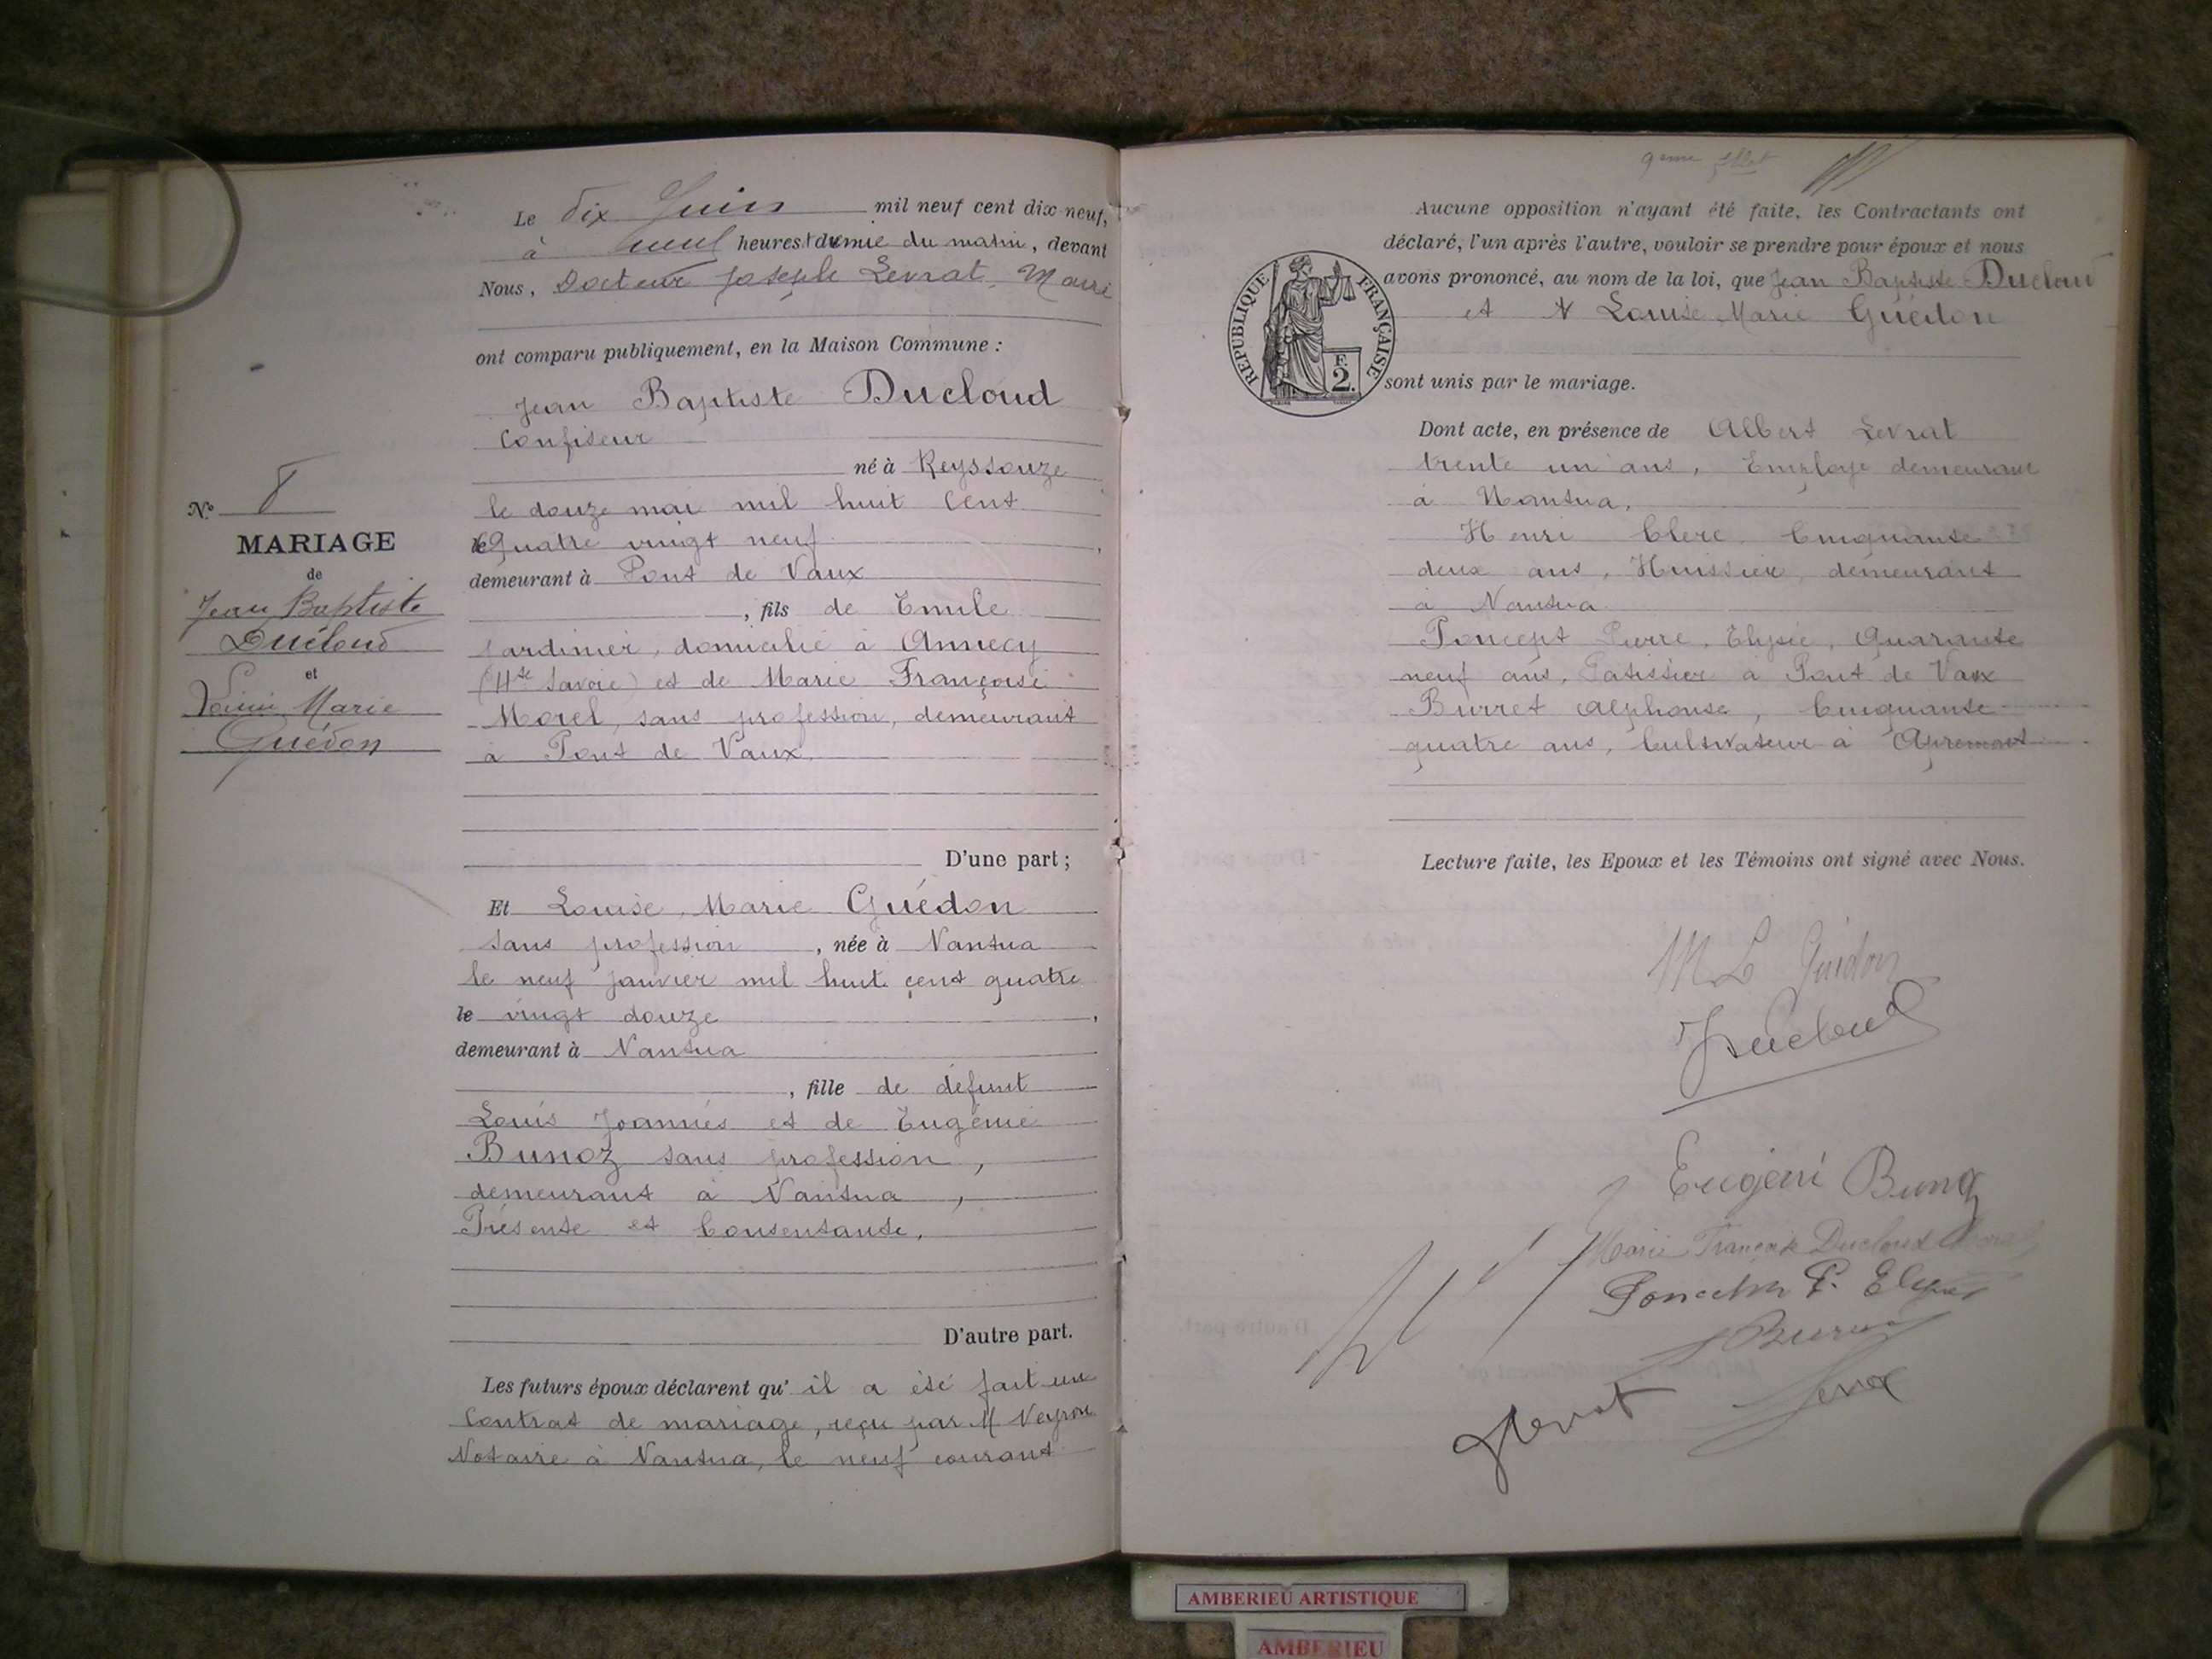 Le dix Juin mil neuf cent dix-neuf,
à neuf heures et demie du matin, devant
Nous, Docteur Joseph Levrat, Maire
ont comparu publiquement, en la Maison Commune :
Jean Baptiste Ducloud
Confiseur
né à Reyssouze
le douze mai mil huit cent
le Quatre vingt neuf,
demeurant à Pont de Vaux
, fils de Emile
jardinier, domicilié à Annecy
(Hte Savoie) et de Marie Françoise
Morel, sans profession, demeurant
à Pont de Vaux.
D'une part ;
Nº 8
MARIAGE
de
Jean Baptiste
Ducloud
et
Louise Marie
Guédon
Et Louise, Marie Guédon
sans profession, née à Nantua
le neuf janvier mil huit cent quatre
le vingt douze,
demeurant à Nantua
, fille de défunt
Louis Joannès et de Eugénie
Bunoz sans profession,
demeurant à Nantua,
Présente et Consentante.
D'autre part.
Les futurs époux déclarent qu'il a été fait un
Contrat de mariage, reçu par M Neyron
Notaire à Nantua, le neuf courant
9eme
Aucune opposition n'ayant été faite, les Contractants ont
déclaré, l'un après l'autre, vouloir se prendre pour époux et nous
avons prononcé, au nom de la loi, que Jean Baptiste Ducloud
et Louise Marie Guédon
REPUBLIQUE FRANÇAISE
F.
2.
sont unis par le mariage.
Dont acte, en présence de Albert Levrat
trente un ans, Employé demeurant
à Nantua,
Henri Clerc, Cinquante
deux ans, Huissier, demeurant
à Nantua
Poncept Pierre, Elysée, Quarante
neuf ans, Patissier à Pont de Vaux
Burret Alphonse, Cinquante
quatre ans, Cultivateur à Apremont
Lecture faite, les Epoux et les Témoins ont signé avec Nous.
M L Guédon
JDucloud
Eugénie Bunoz
Marie Françoise Ducloud
P. Elysée
Levrat
AMBERIEU ARTISTIQUE
AMBERIEU